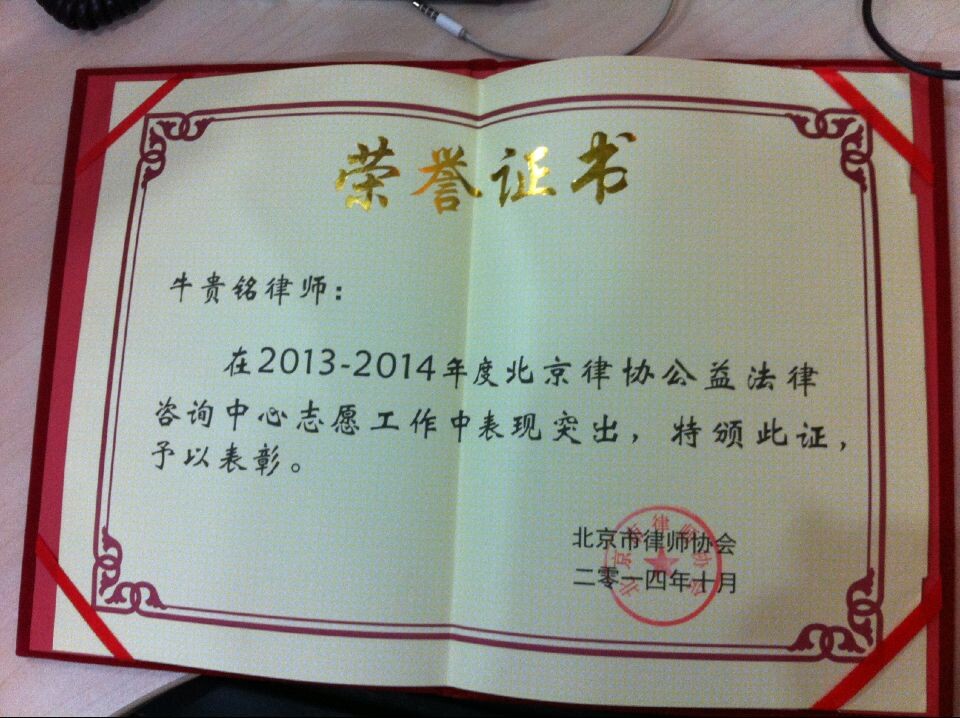 荣誉证书
牛贵铭律师：
在2013-2014年度北京律协公益法律
咨询中心志愿工作中表现突出，特颁此证，
予以表彰。
北京市律师协会
二零一四年十月
北京市律师协会